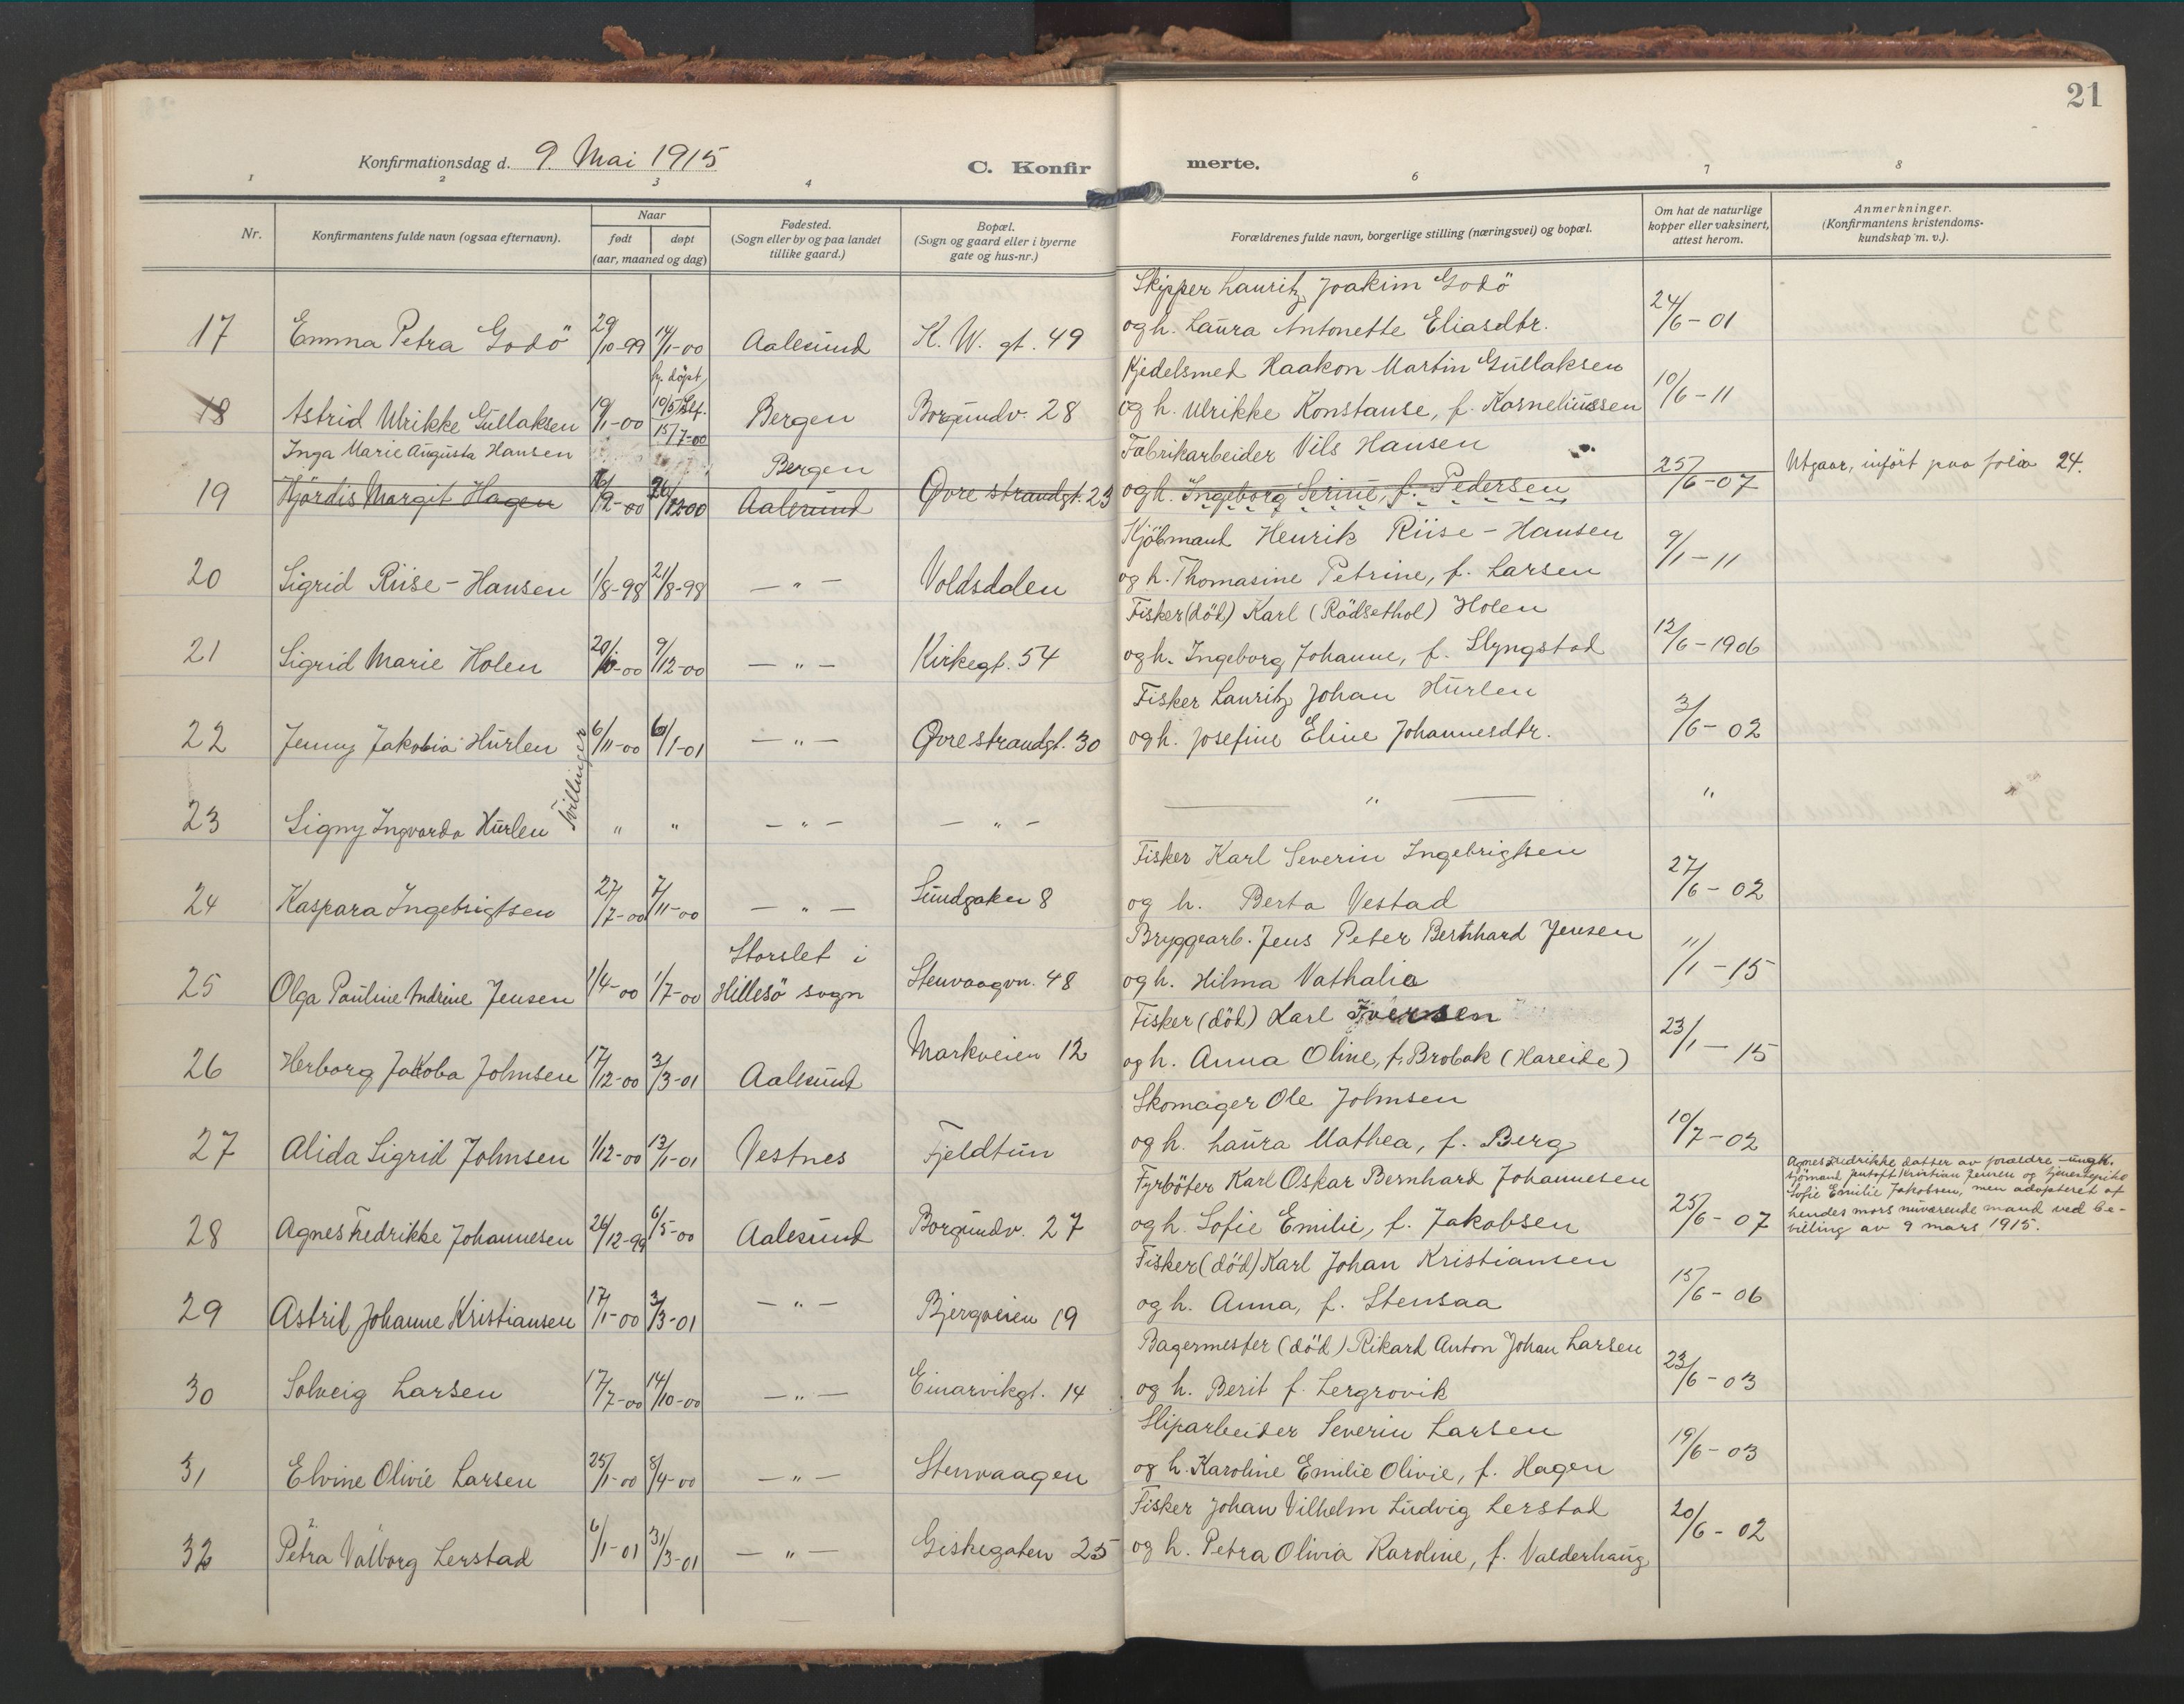 21
Konfirmationsdag d. 9. Mai 1915
C. Konfirmerte.
1 2 3 4 5 6 7 8
Nr.
Konfirmantens fulde navn (ogsaa efternavn).
Naar
født døpt
(aar, maaned og dag)
Fødested.
(Sogn eller by og paa landet
tillike gaard.)
Bopæl.
(Sogn og gaard eller i byerne
gate og hus-nr.)
Forældrenes fulde navn, borgerlige stilling (næringsvei) og bopæl.
Om hat de naturlige
kopper eller vaksinert,
attest herom.
Anmerkninger.
(Konfirmantens kristendoms-
kundskap m. v.).
Skipper Lauritz Joakim Godö
17 Emma Petra Godö 29/10-99 14/1-00 Aalesund K. W. gt. 49 og h. Laura Antonette Eliasdtr. 24/6-01
hj. döpt
Kjedelsmed Haakon Martin Gullaksen
18 Astrid Ulrikke Gullaksen 19/1-00 10/5 15/7-00 Bergen Borgundv. 28 og h. Ulrikke Konstanse, f. Korneliussen 10/6-11
Inga Marie Augusta Hansen Bergen Fabrikarbeider Nils Hansen
19 Hjördis Margit Hagen 16/12-00 26/12-00 Aalesund Øvre strandgt. 23 og h. Ingeborg Serine, f. Pedersen 25/6-07 Utgaar, infört paa folio 24.
Kjöbmand Henrik Riise-Hansen
20 Sigrid Riise-Hansen 1/8-98 21/8-98 — " — Voldsdalen og h. Thomasine Petrine, f. Larsen 9/1-11
Fisker (död) Karl (Rödsethol) Holen
21 Sigrid Marie Holen 20/10-00 9/12-00 — " — Kirkegt. 54 og h. Ingeborg Johanne, f. Slyngstad 12/6-1906
Fisker Lauritz Johan Hurlen
22 Jenny Jakobia Hurlen 6/11-00 6/1-01 — " — Øvrestrandgt. 30 og h. Josefine Eline Johannesdtr. 3/6-02
Tvillinger
23 Signy Ingvarda Hurlen " " — " — — " — — " — "
Fisker Karl Severin Ingebrigtsen
24 Kaspara Ingebrigtsen 27/7-00 7/11-00 — " — Sundgaten 8 og h. Berta Vestad 27/6-02
Storslet i Bryggearb. Jens Peter Bernhard Jensen
25 Olga Pauline Andrine Jensen 1/4-00 1/7-00 Hillesö sogn Stenvaagvn. 48 og h. Hilma Nathalia 11/1-15
Fisker (död) Karl Iversen
26 Herborg Jakoba Johnsen 17/12-00 3/3-01 Aalesund Markveien 12 og h. Anna Oline, f. Brobak (Hareide) 23/1-15
Skomager Ole Johnsen
27 Alida Sigrid Johnsen 1/12-00 13/1-01 Vestnes Fjeldtun og h. Laura Mathea, f. Berg 10/7-02
Fyrböter Karl Oskar Bernhard Johannesen
28 Agnes Fredrikke Johannesen 26/12-99 6/5-00 Aalesund Borgundv. 27 og h. Sofie Emilie, f. Jakobsen 25/6-07
Agnes Fredrikke datter av forældre ungk.
sjömand Kristian Jensen og tjenestepike
Sofie Emilie Jakobsen, men adopteret af
hendes mors nuværende mand ved be-
villing av 9 mars 1915.
Fisker (död) Karl Johan Kristiansen
29 Astrid Johanne Kristiansen 17/1-00 3/3-01 — " — Bjergveien 19 og h. Anna, f. Stensaa 15/6-06
Bagermester (död) Rikard Anton Johan Larsen
30 Solveig Larsen 17/7-00 14/10-00 — " — Einarvikgt. 14 og h. Berit f. Lergrovik 23/6-03
Sliparbeider Severin Larsen
31 Elvine Olivie Larsen 25/1-00 8/4-00 — " — Stenvaagen og h. Karoline Emilie Olivie, f. Hagen 19/6-03
Fisker Johan Vilhelm Ludvig Lerstad
32 Petra Valborg Lerstad 6/1-01 31/3-01 — " — Giskegaten 25 og h. Petra Olivia Karoline, f. Valderhaug 20/6-02